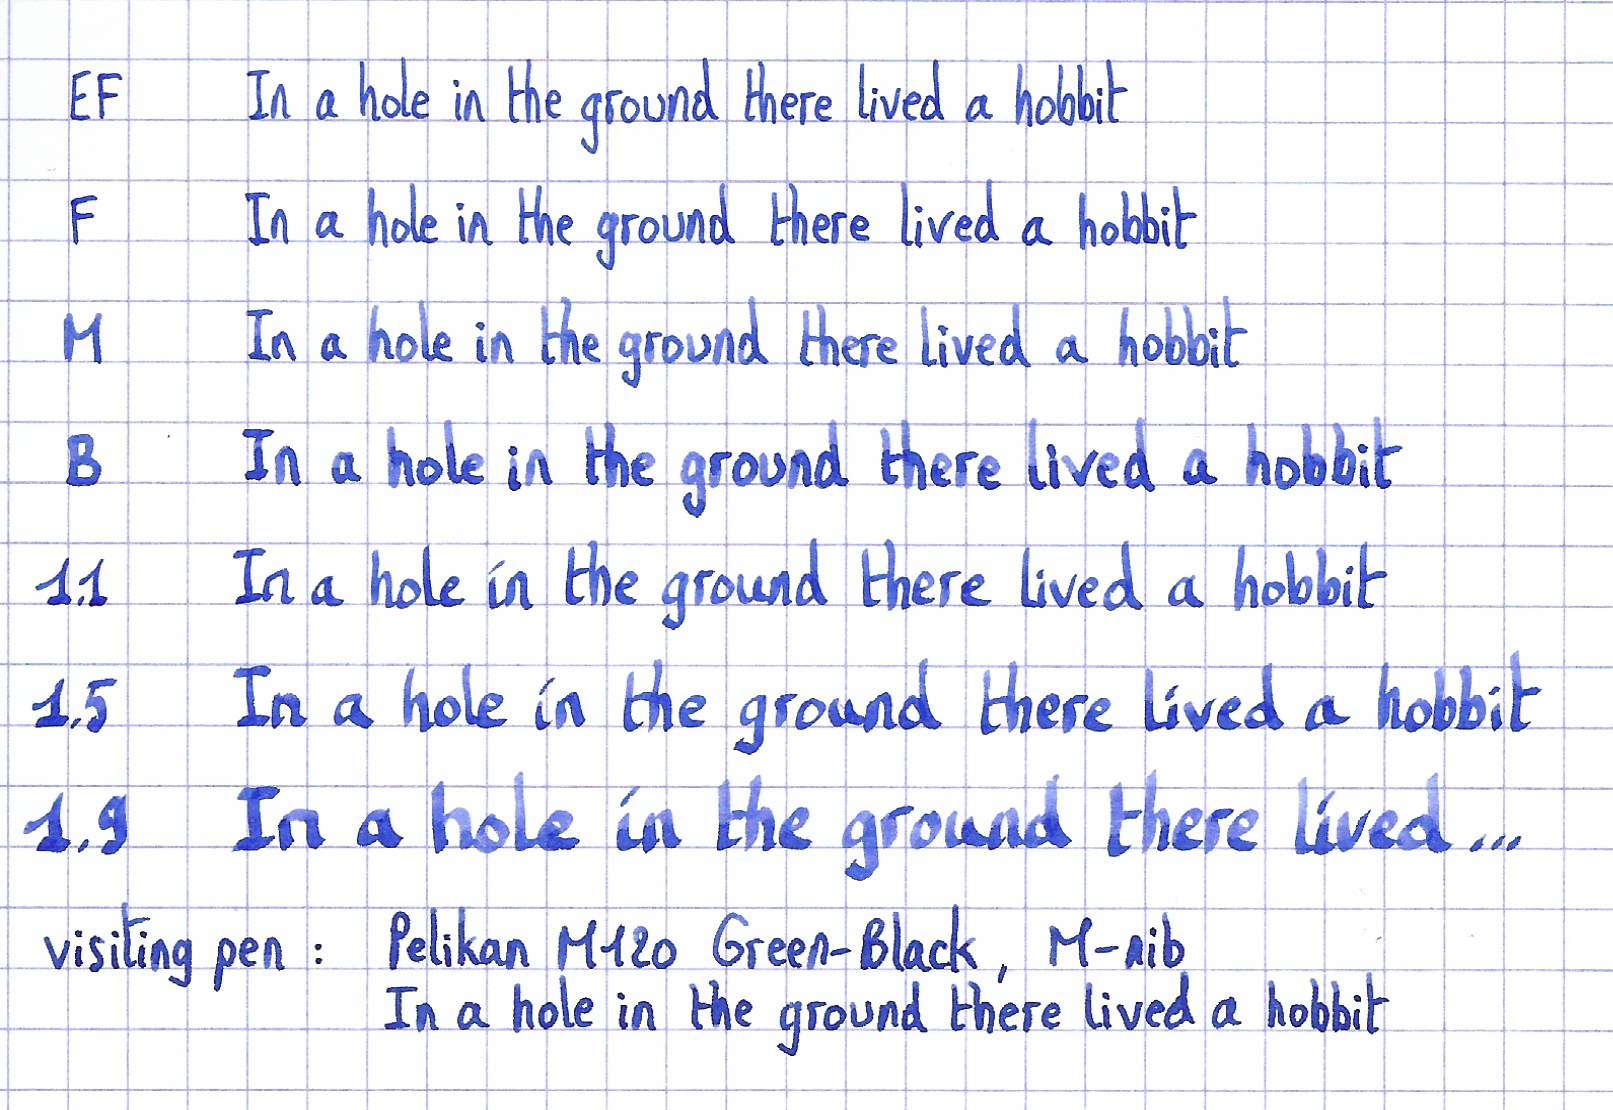 EF In a hole in the ground there lived a hobbit
F In a hole in the ground there lived a hobbit
M In a hole in the ground there lived a hobbit
B In a hole in the ground there lived a hobbit
1.1 In a hole in the ground there lived a hobbit
1.5 In a hole in the ground there lived a hobbit
1.9 In a hole in the ground there lived...
visiting pen : Pelikan M120 Green-Black, M-nib
In a hole in the ground there lived a hobbit